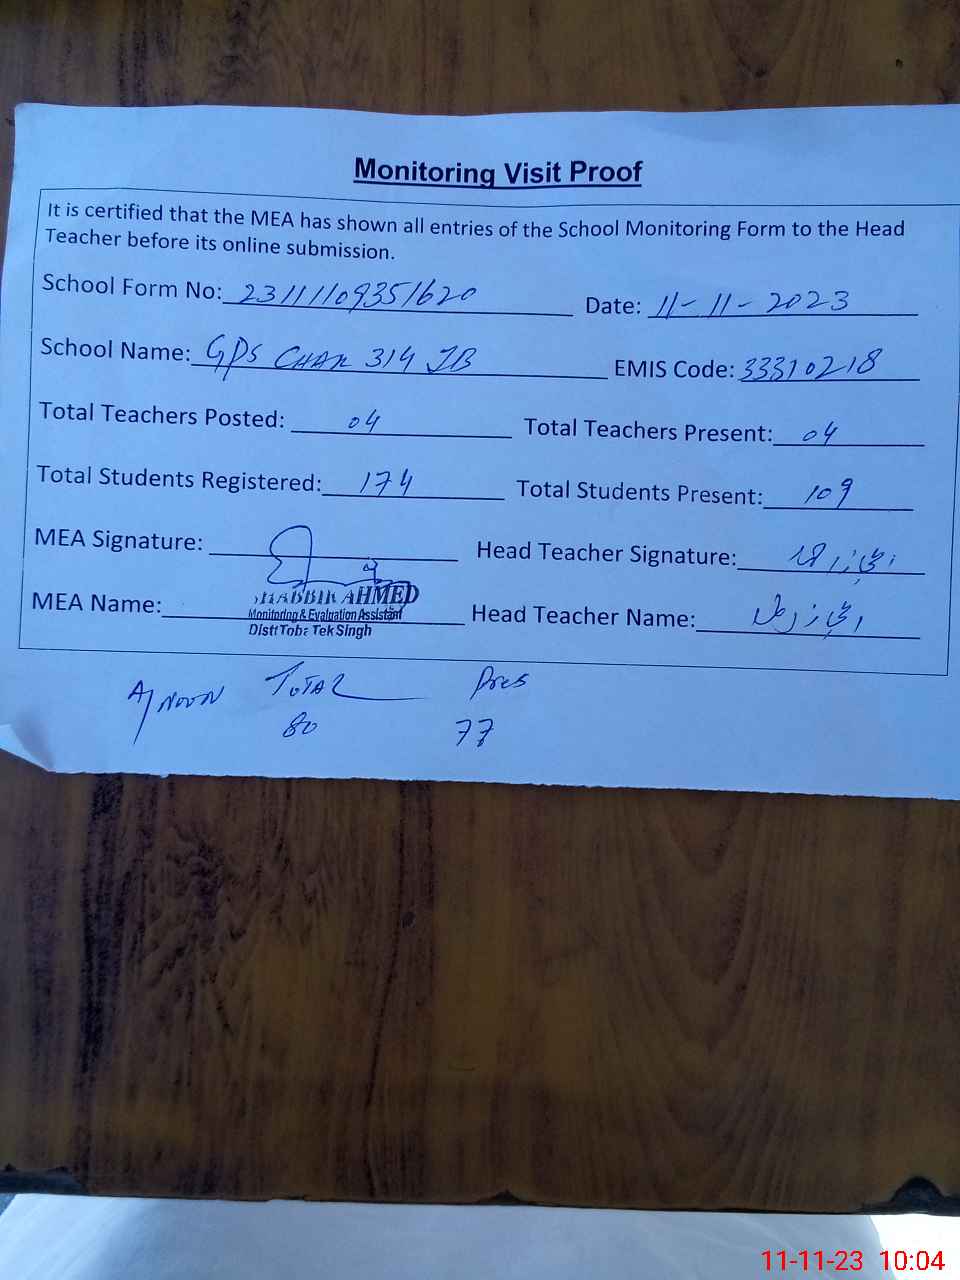 Monitoring Visit Proof
It is certified that the MEA has shown all entries of the School Monitoring Form to the Head
Teacher before its online submission.
School Form No: 23111109351620 Date: 11-11-2023
School Name: GPS CHAK 314 JB EMIS Code: 33310218
Total Teachers Posted: 04 Total Teachers Present: 04
Total Students Registered: 174 Total Students Present: 109
MEA Signature: Head Teacher Signature:
MEA Name: SHABBIR AHMED Head Teacher Name:
Monitoring & Evaluation Assistant
Distt Toba Tek Singh
A/NOON TOTAL Pres
80 77
11-11-23 10:04